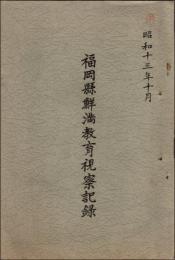 昭和十三年十月
福岡縣鮮満教育視察記錄